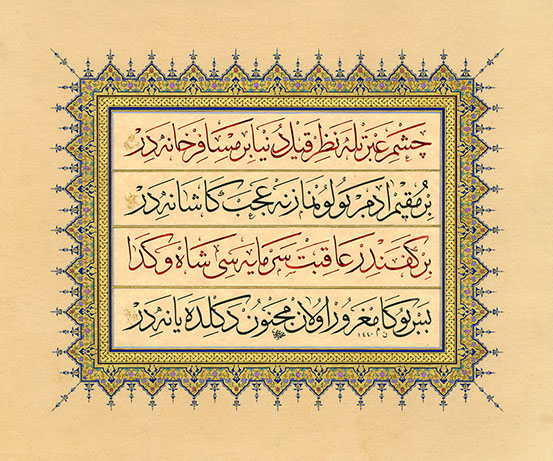 چشم عبرتله نظر قیل دنیا بر مسافرخانه در
بر مقیم ادم بولونماز نه عجب کاشانه در
بر کفندر عاقبت سرمایه سی شاه و کدا
بس بوکا مغرور اولان مجنون دکلده یا نه در